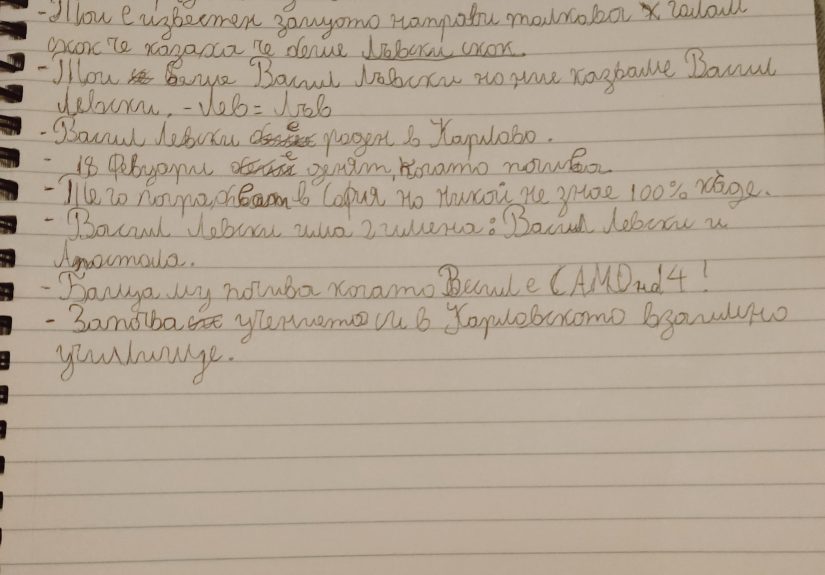 - Той е известен защото направи толкова голям
скок че казаха че беше Лъвски скок.
- Той беше Васил Лъвски но ние казваме Васил
Левски. - Лев = Лъв
- Васил Левски е роден в Карлово.
- 18 Февуари е денят, когато почива.
- Него погрǎбват в София но никой не знае 100% къде.
- Васил Левски има 2 имена: Васил Левски и
Апостола.
- Баща му почива когато Васил е САМО на 14!
- Започва учението си в Карловското взаимно
училище.